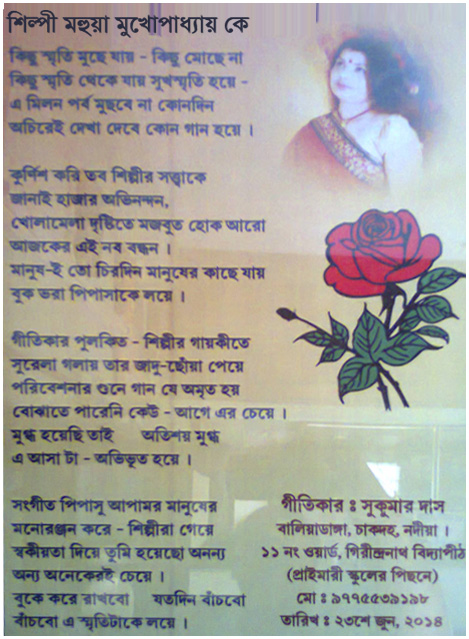 শিল্পী মহুয়া মুখোপাধ্যায় কে
কিছু স্মৃতি মুছে যায় - কিছু মোছে না
কিছু স্মৃতি থেকে যায় সুখস্মৃতি হয়ে -
এ মিলন পর্ব মুছবে না কোনদিন
অচিরেই দেখা দেবে কোন গান হয়ে ।
কুর্ণিশ করি তব শিল্পীর সত্ত্বাকে
জানাই হাজার অভিনন্দন,
খোলামেলা দৃষ্টিতে মজবুত হোক আরো
আজকের এই নব বন্ধন ।
মানুষ-ই তো চিরদিন মানুষের কাছে যায়
বুক ভরা পিপাসাকে লয়ে ।
গীতিকার পুলকিত - শিল্পীর গায়কীতে
সুরেলা গলায় তার জাদু-ছোঁয়া পেয়ে
পরিবেশনার গুনে গান যে অমৃত হয়
বোঝাতে পারেনি কেউ - আগে এর চেয়ে ।
মুগ্ধ হয়েছি তাই অতিশয় মুগ্ধ
এ আসা টা - অভিভূত হয়ে ।
সংগীত পিপাসু আপামর মানুষের
মনোরঞ্জন করে - শিল্পীরা গেয়ে
স্বকীয়তা দিয়ে তুমি হয়েছো অনন্য
অন্য অনেকেরই চেয়ে ।
বুকে করে রাখবো যতদিন বাঁচবো
বাঁচবো এ স্মৃতিটাকে লয়ে ।
গীতিকার ঃ সুকুমার দাস
বালিয়াডাঙ্গা, চাকদহ, নদীয়া ।
১১ নং ওয়ার্ড, গিরীন্দ্রনাথ বিদ্যাপীঠ
(প্রাইমারী স্কুলের পিছনে)
মো ঃ ৯৭৭৫৫৩৯১৯৮
তারিখ ঃ ২৩শে জুন, ২০১৪